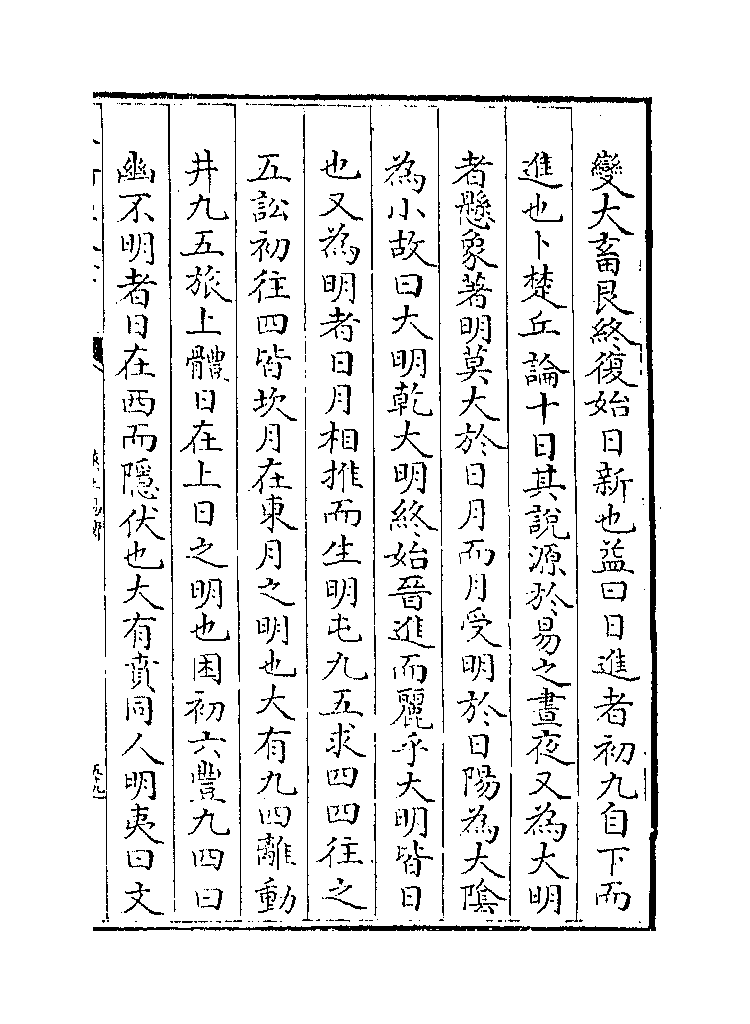 變大畜艮終復始日新也益曰日進者初九自下而
進也卜楚丘論十日其說源於易之晝夜又為大明
者懸象著明莫大於日月而月受明於日陽為大隂
為小故曰大明乾大明終始晉進而麗乎大明皆日
也又為明者日月相推而生明屯九五求四四往之
五訟初往四皆坎月在東月之明也大有九四離動
井九五旅上體日在上日之明也困初六豐九四曰
幽不明者日在西而隱伏也大有賁同人明夷曰文